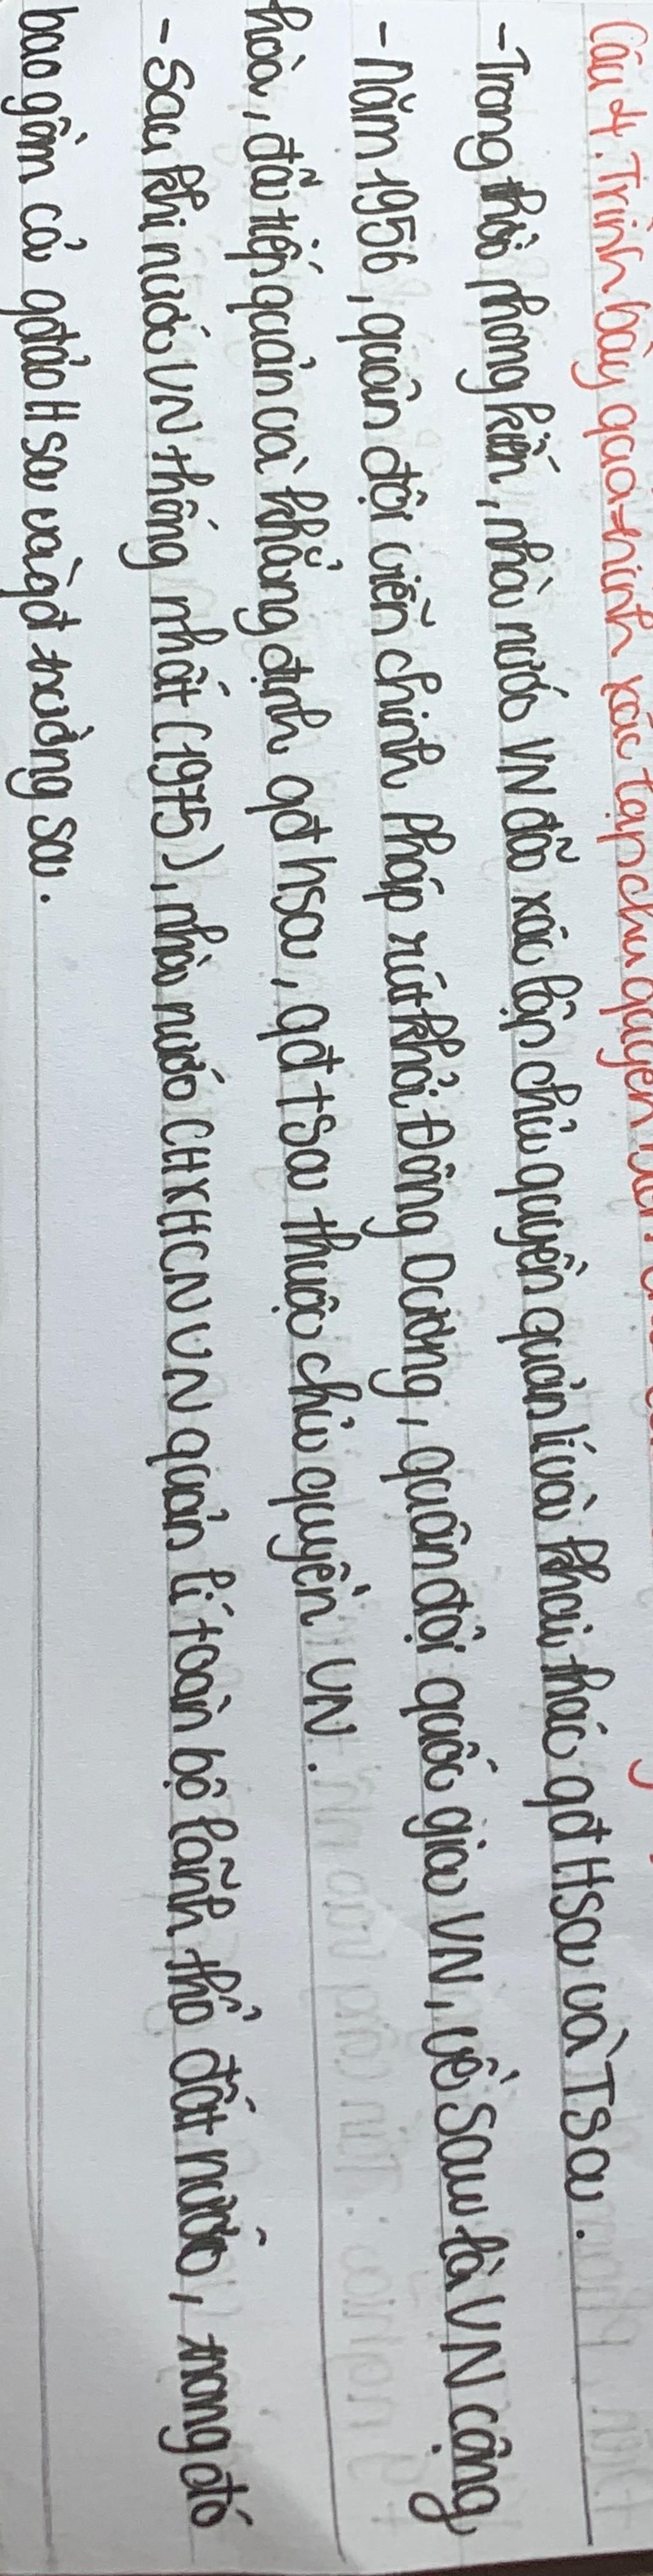 Câu 4. Trình bày quá trình xác lập chủ quyền
- Trong thời phong kiến, nhà nước VN đã xác lập chủ quyền quản lí và khai thác qđ Hsa và Tsa.
- năm 1956, quân đội viễn chinh Pháp rút khỏi Đông Dương, quân đội quốc gia VN, về sau là VN cộng
hoà, đã tiếp quản và khẳng định qđ hsa, qđ tsa thuộc chủ quyền VN.
- Sau khi nước VN thống nhất (1975), nhà nước CHXHCNVN quản lí toàn bộ lãnh thổ đất nước, trong đó
bao gồm cả qđảo H sa và qđ trường sa.